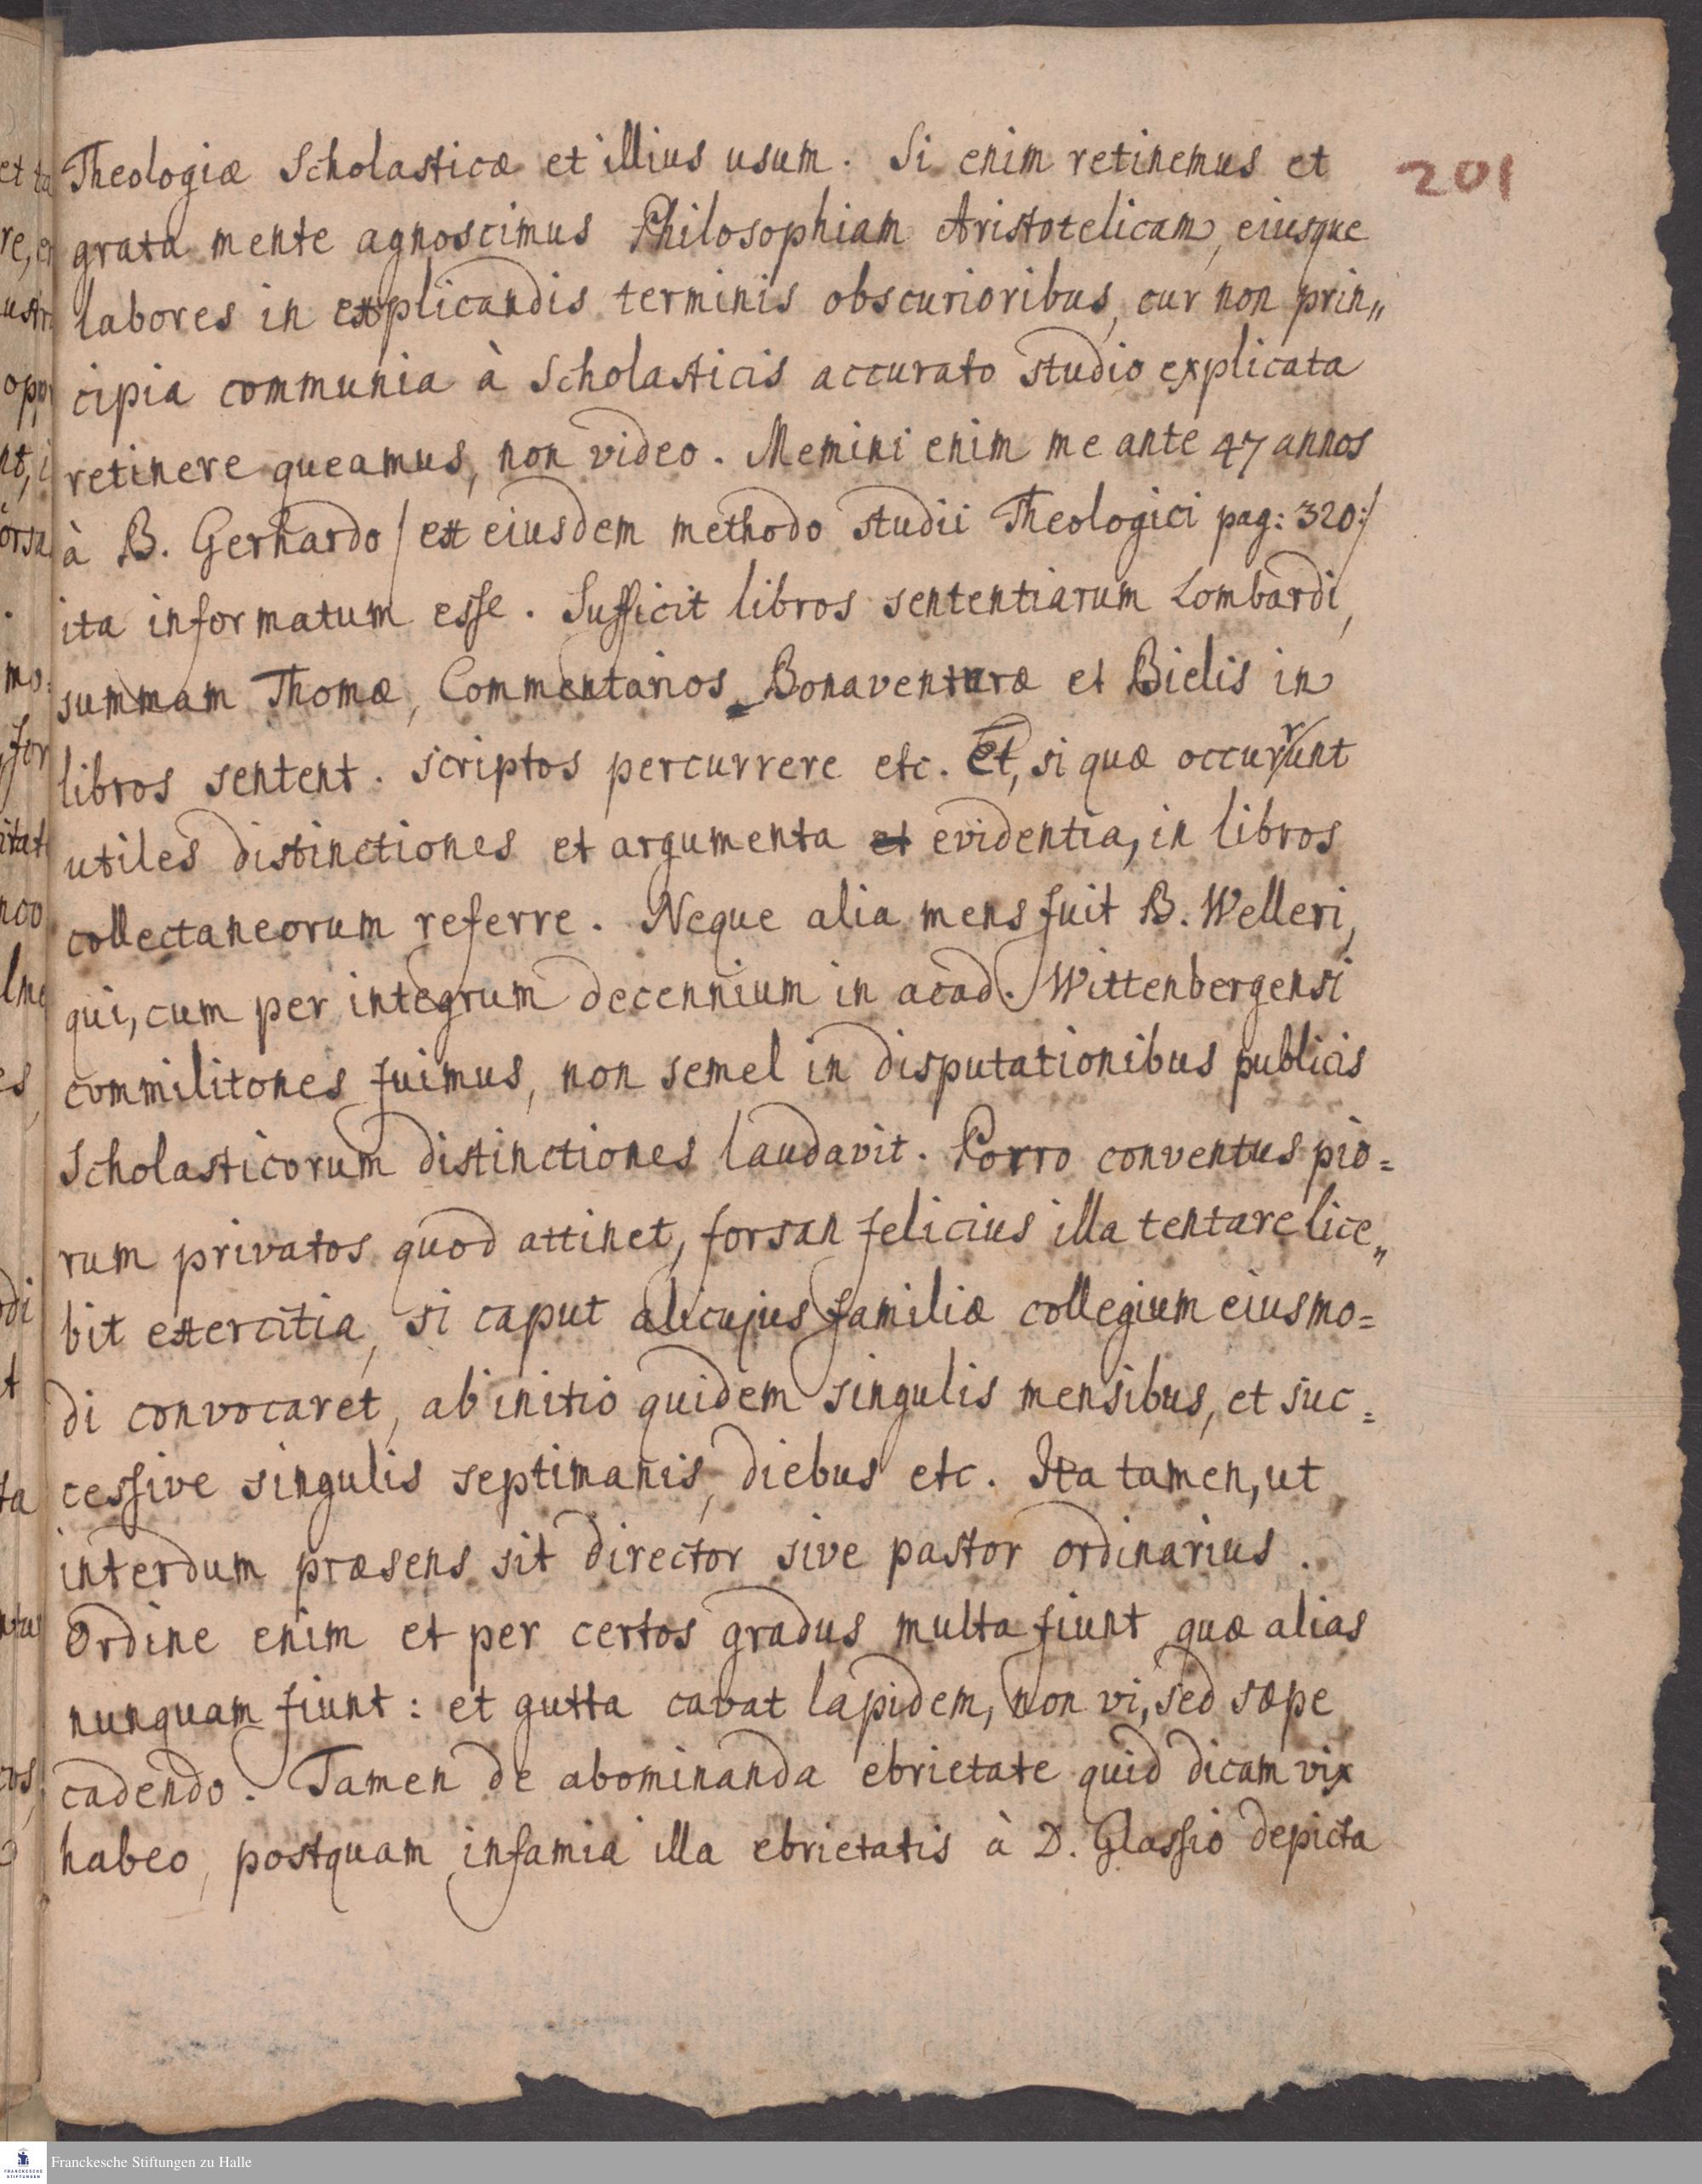 201
Theologiæ Scholasticæ et illius usum. Si enim retinemus et
grata mente agnoscimus Philosophiam Aristotelicam, eiusque
labores in explicandis terminis obscurioribus, cur non prin„
cipia communia à Scholasticis accurato studio explicata
retinere queamus, non video. Memini enim me ante 47 annos
à B. Gerhardo /ex eiusdem methodo studii Theologici pag: 320:/
ita informatum esse. Sufficit libros sententiarum Lombardi,
summam Thomæ, Commentarios Bonaventuræ et Bielis in
libros sentent. scriptos percurrere etc. Et, si quæ occurrunt
utiles distinctiones et argumenta et evidentia, in libros
collectaneorum referre. Neque alia mens fuit B. Welleri,
qui, cum per integrum decennium in acad. Wittenbergensi
commilitones fuimus, non semel in disputationibus publicis
Scholasticorum distinctiones laudavit. Porro conventus pio=
rum privatos quod attinet, forsan felicius illa tentare lice„
bit exercitia, si caput alicujus familiæ collegium eiusmo=
di convocaret, ab initio quidem singulis mensibus, et suc=
cessive singulis septimanis, diebus etc. Ita tamen, ut
interdum præsens sit director sive pastor ordinarius.
Ordine enim et per certos gradus multa fiunt quæ alias
nunquam fiunt: et gutta cavat lapidem, non vi, sed sæpe
cadendo. Tamen de abominanda ebrietate quid dicam vix
habeo, postquam infamia illa ebrietatis à D. Glassio depicta
Franckesche Stiftungen zu Halle